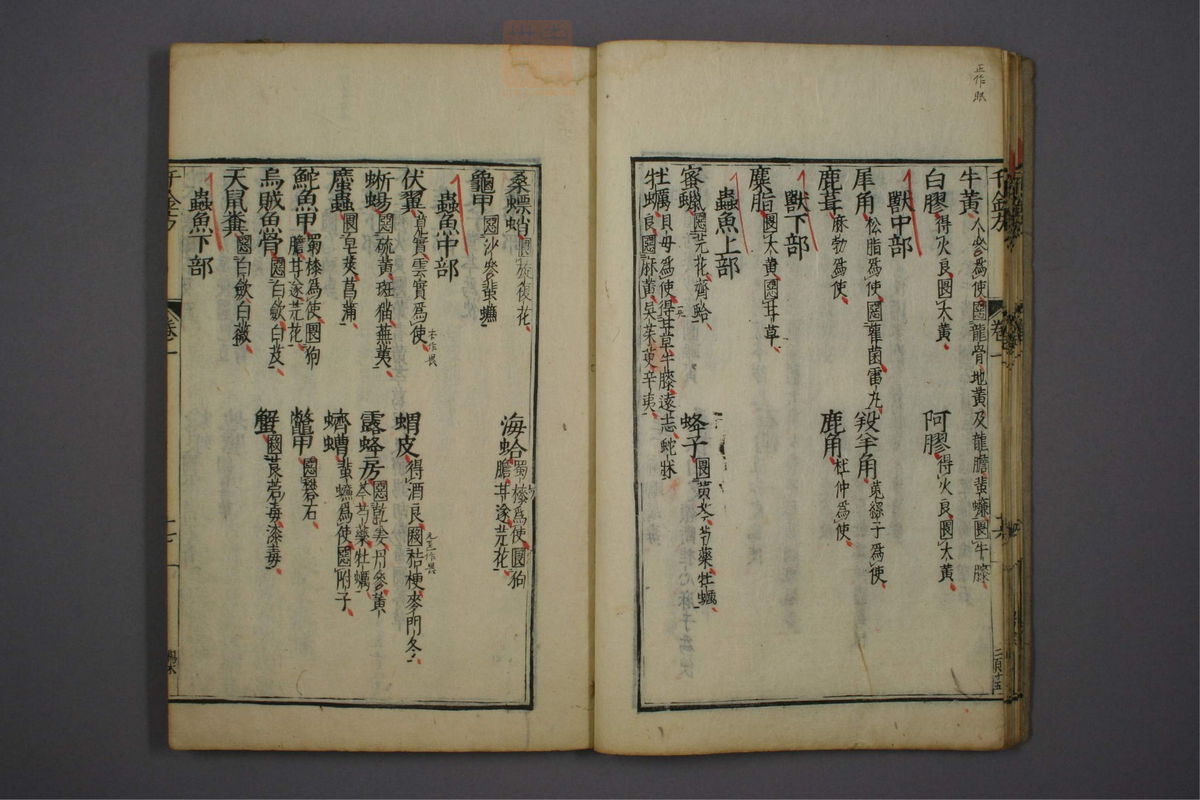 正作㞋
千金方
卷一
二十六
二百十五
牛黃人參爲使惡龍骨地黃及龍膽蜚蠊畏牛膝
白膠得火良畏大黃 阿膠得火良畏大黃
獸中部
犀角松脂爲使惡雚菌雷丸 羖羊角菟絲子爲使
鹿茸麻勃爲使 鹿角杜仲爲使
獸下部
麋脂畏大黃惡甘草
蟲魚上部
蜜蠟惡芫花齊蛤 蜂子畏黃芩芍藥牡蠣
牡蠣貝母爲使得甘草牛膝遠志蛇牀良惡麻黃吳茱萸辛夷
桑螵蛸畏旋復花 海蛤蜀榛爲使畏狗膽甘遂芫花
龜甲惡沙參蜚蠊
蟲魚中部
伏翼莧實雲實爲使 蝟皮得酒良畏桔梗麥門冬
蜥蜴惡硫黃斑猫蕪荑 露蜂房惡乾姜丹參黃芩芍藥牡蠣
䗪蟲畏皂莢菖蒲 蠐螬蜚蠊爲使惡附子
鮀魚甲蜀榛爲使畏狗膽甘遂芫花 鼈甲惡礬石
烏賊魚骨惡白斂白芨 蟹畏莨菪毒漆毒
天鼠糞惡白斂白薇
蟲魚下部
千金方
卷一
二十七